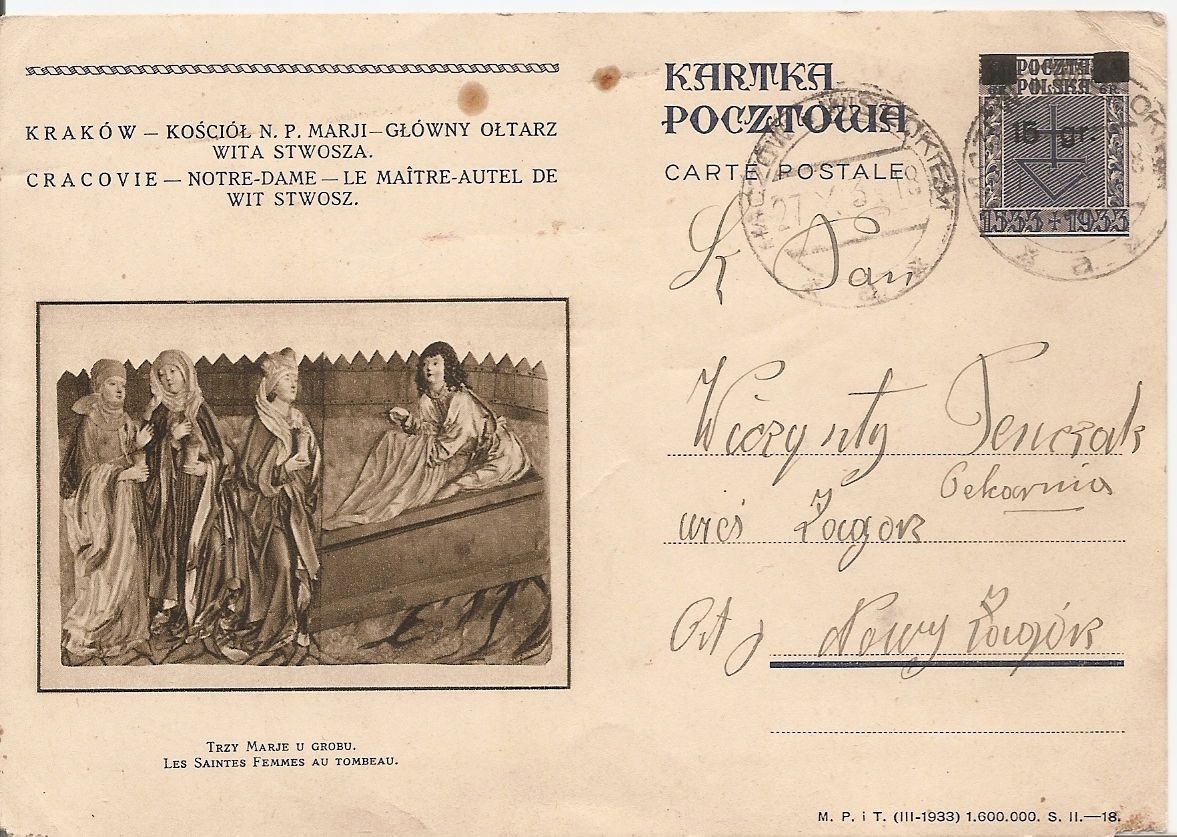 KRAKÓW — KOŚCIÓŁ N. P. MARJI—GŁÓWNY OŁTARZ
WITA STWOSZA.
CRACOVIE — NOTRE-DAME — LE MAÎTRE-AUTEL DE
WIT STWOSZ.
TRZY MARJE U GROBU.
LES SAINTES FEMMES AU TOMBEAU.
KARTKA
POCZTOWA
CARTE POSTALE
POCZTA
POLSKA
GR.
15 gr.
1533 + 1933
27
a
Pan
Wiczynty Tenczak
Pekarnia
wieś Zagorz
Nowy Zagórz
M. P. i T. (III-1933) 1.600.000. S. II.—18.